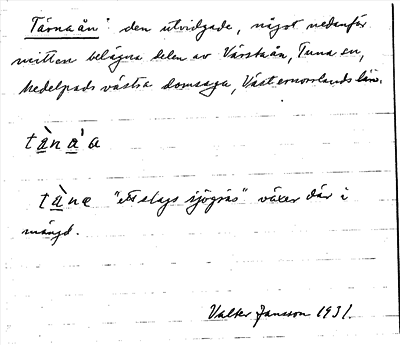 Tärnaån: den utvidgade, något nedanför
mitten belägna delen av Vårstaån, Tuna sn,
Medelpads västra domsaga, Västernorrlands län.
tàn á a
tànæ "ett slags sjögräs" växer där i
mängd.
Valter Jansson 1931.